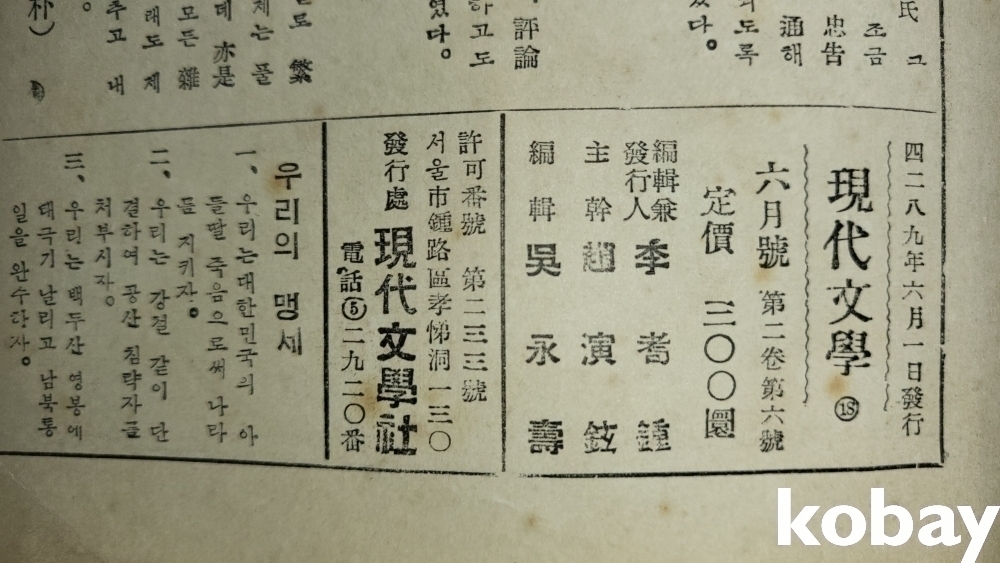 氏 그
조금
忠告
通해
되도록
있다。
評論
하고도
였다。
로 繁
제는 풀
데 亦是
모든 雜
래도 제
추고 내
朴)
四二八九年六月一日發行
現代文學
⑱
六月號 第二卷第六號
定價 三〇〇圜
編輯兼
發行人 李 耉 鍾
主幹 趙 演 鉉
編輯 吳 永 壽
許可番號 第二三三號
서울市鍾路區孝悌洞一三〇
發行處 現代文學社
電話⑤二九二〇番
우리의 맹세
一、우리는 대한민국의 아
들딸 죽음으로써 나라
를 지키자。
二、우리는 강철 같이 단
결하여 공산 침략자를
처부시자。
三、우리는 백두산 영봉에
태극기 날리고 남북통
일을 완수하자。
kobay